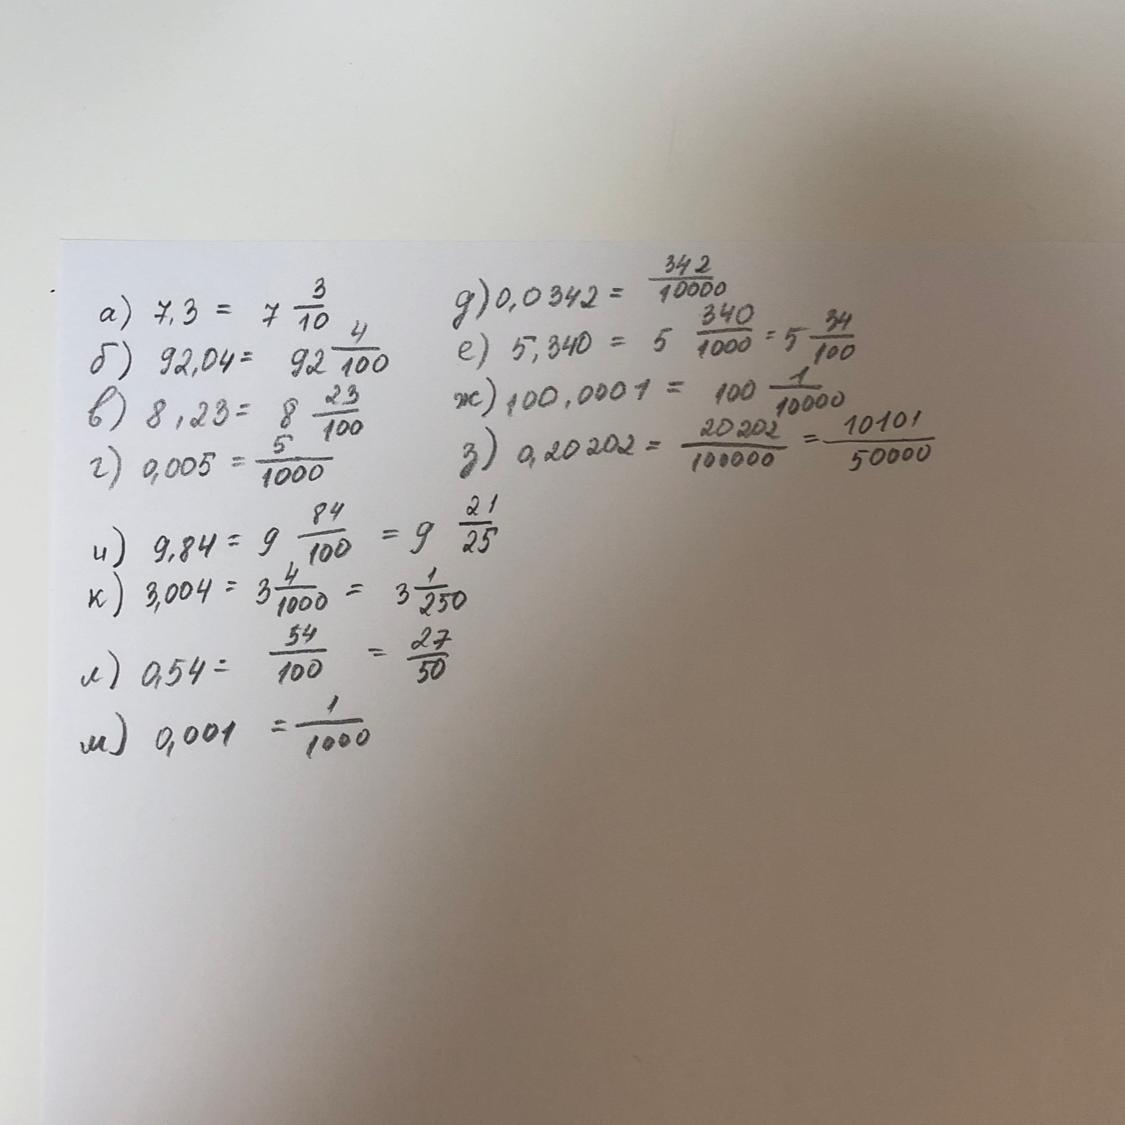 а) 7,3 = 7 3/10
б) 92,04 = 92 4/100
в) 8,23 = 8 23/100
г) 0,005 = 5/1000
д) 0,0342 = 342/10000
е) 5,340 = 5 340/1000 = 5 34/100
ж) 100,0001 = 100 1/10000
з) 0,20202 = 20202/100000 = 10101/50000
и) 9,84 = 9 84/100 = 9 21/25
к) 3,004 = 3 4/1000 = 3 1/250
л) 0,54 = 54/100 = 27/50
м) 0,001 = 1/1000